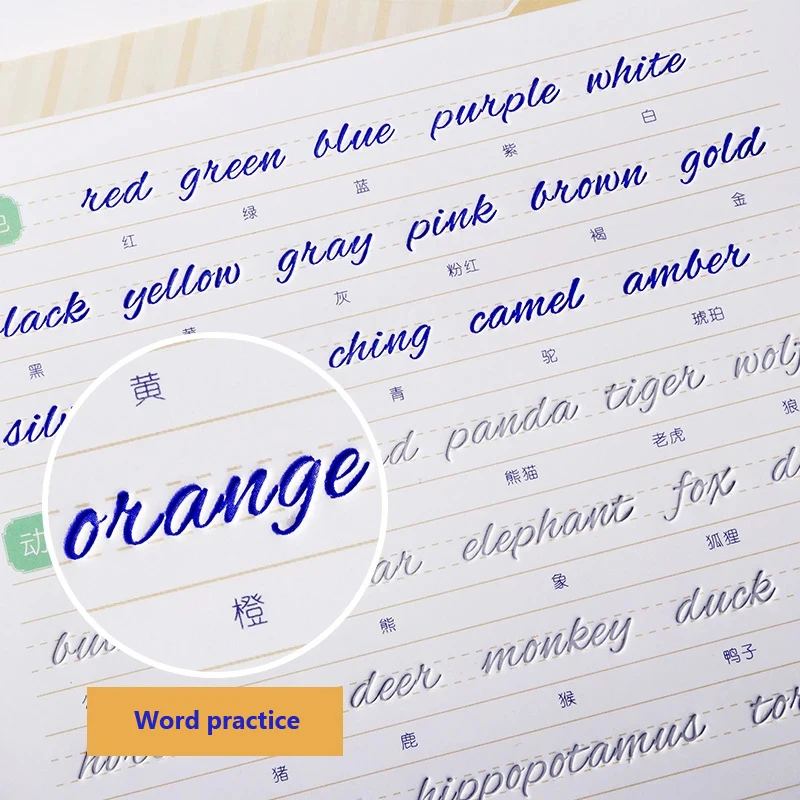 red green blue purple white
红 绿 蓝 紫 白
yellow gray pink brown gold
黑 灰 粉红 褐 金
ching camel amber
青 驼 琥珀
黄
orange
橙
panda tiger
熊猫 老虎 狼
elephant fox
熊 象 狐狸
deer monkey duck
鹿 猴 鸭子
hippopotamus
猪
动
Word practice